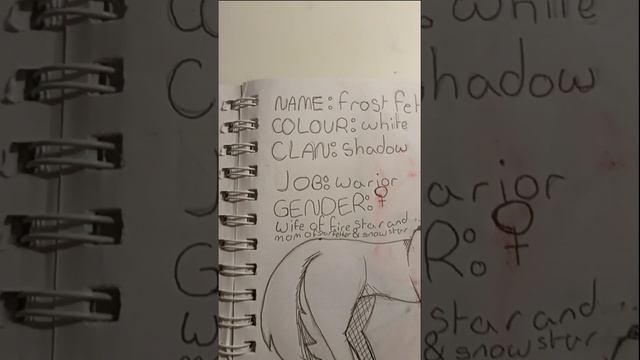 NAME: frost fet
COLOUR: white
CLAN: shadow
JOB: warior
GENDER: ♀
wife of fire star and ..
mom of & snow star